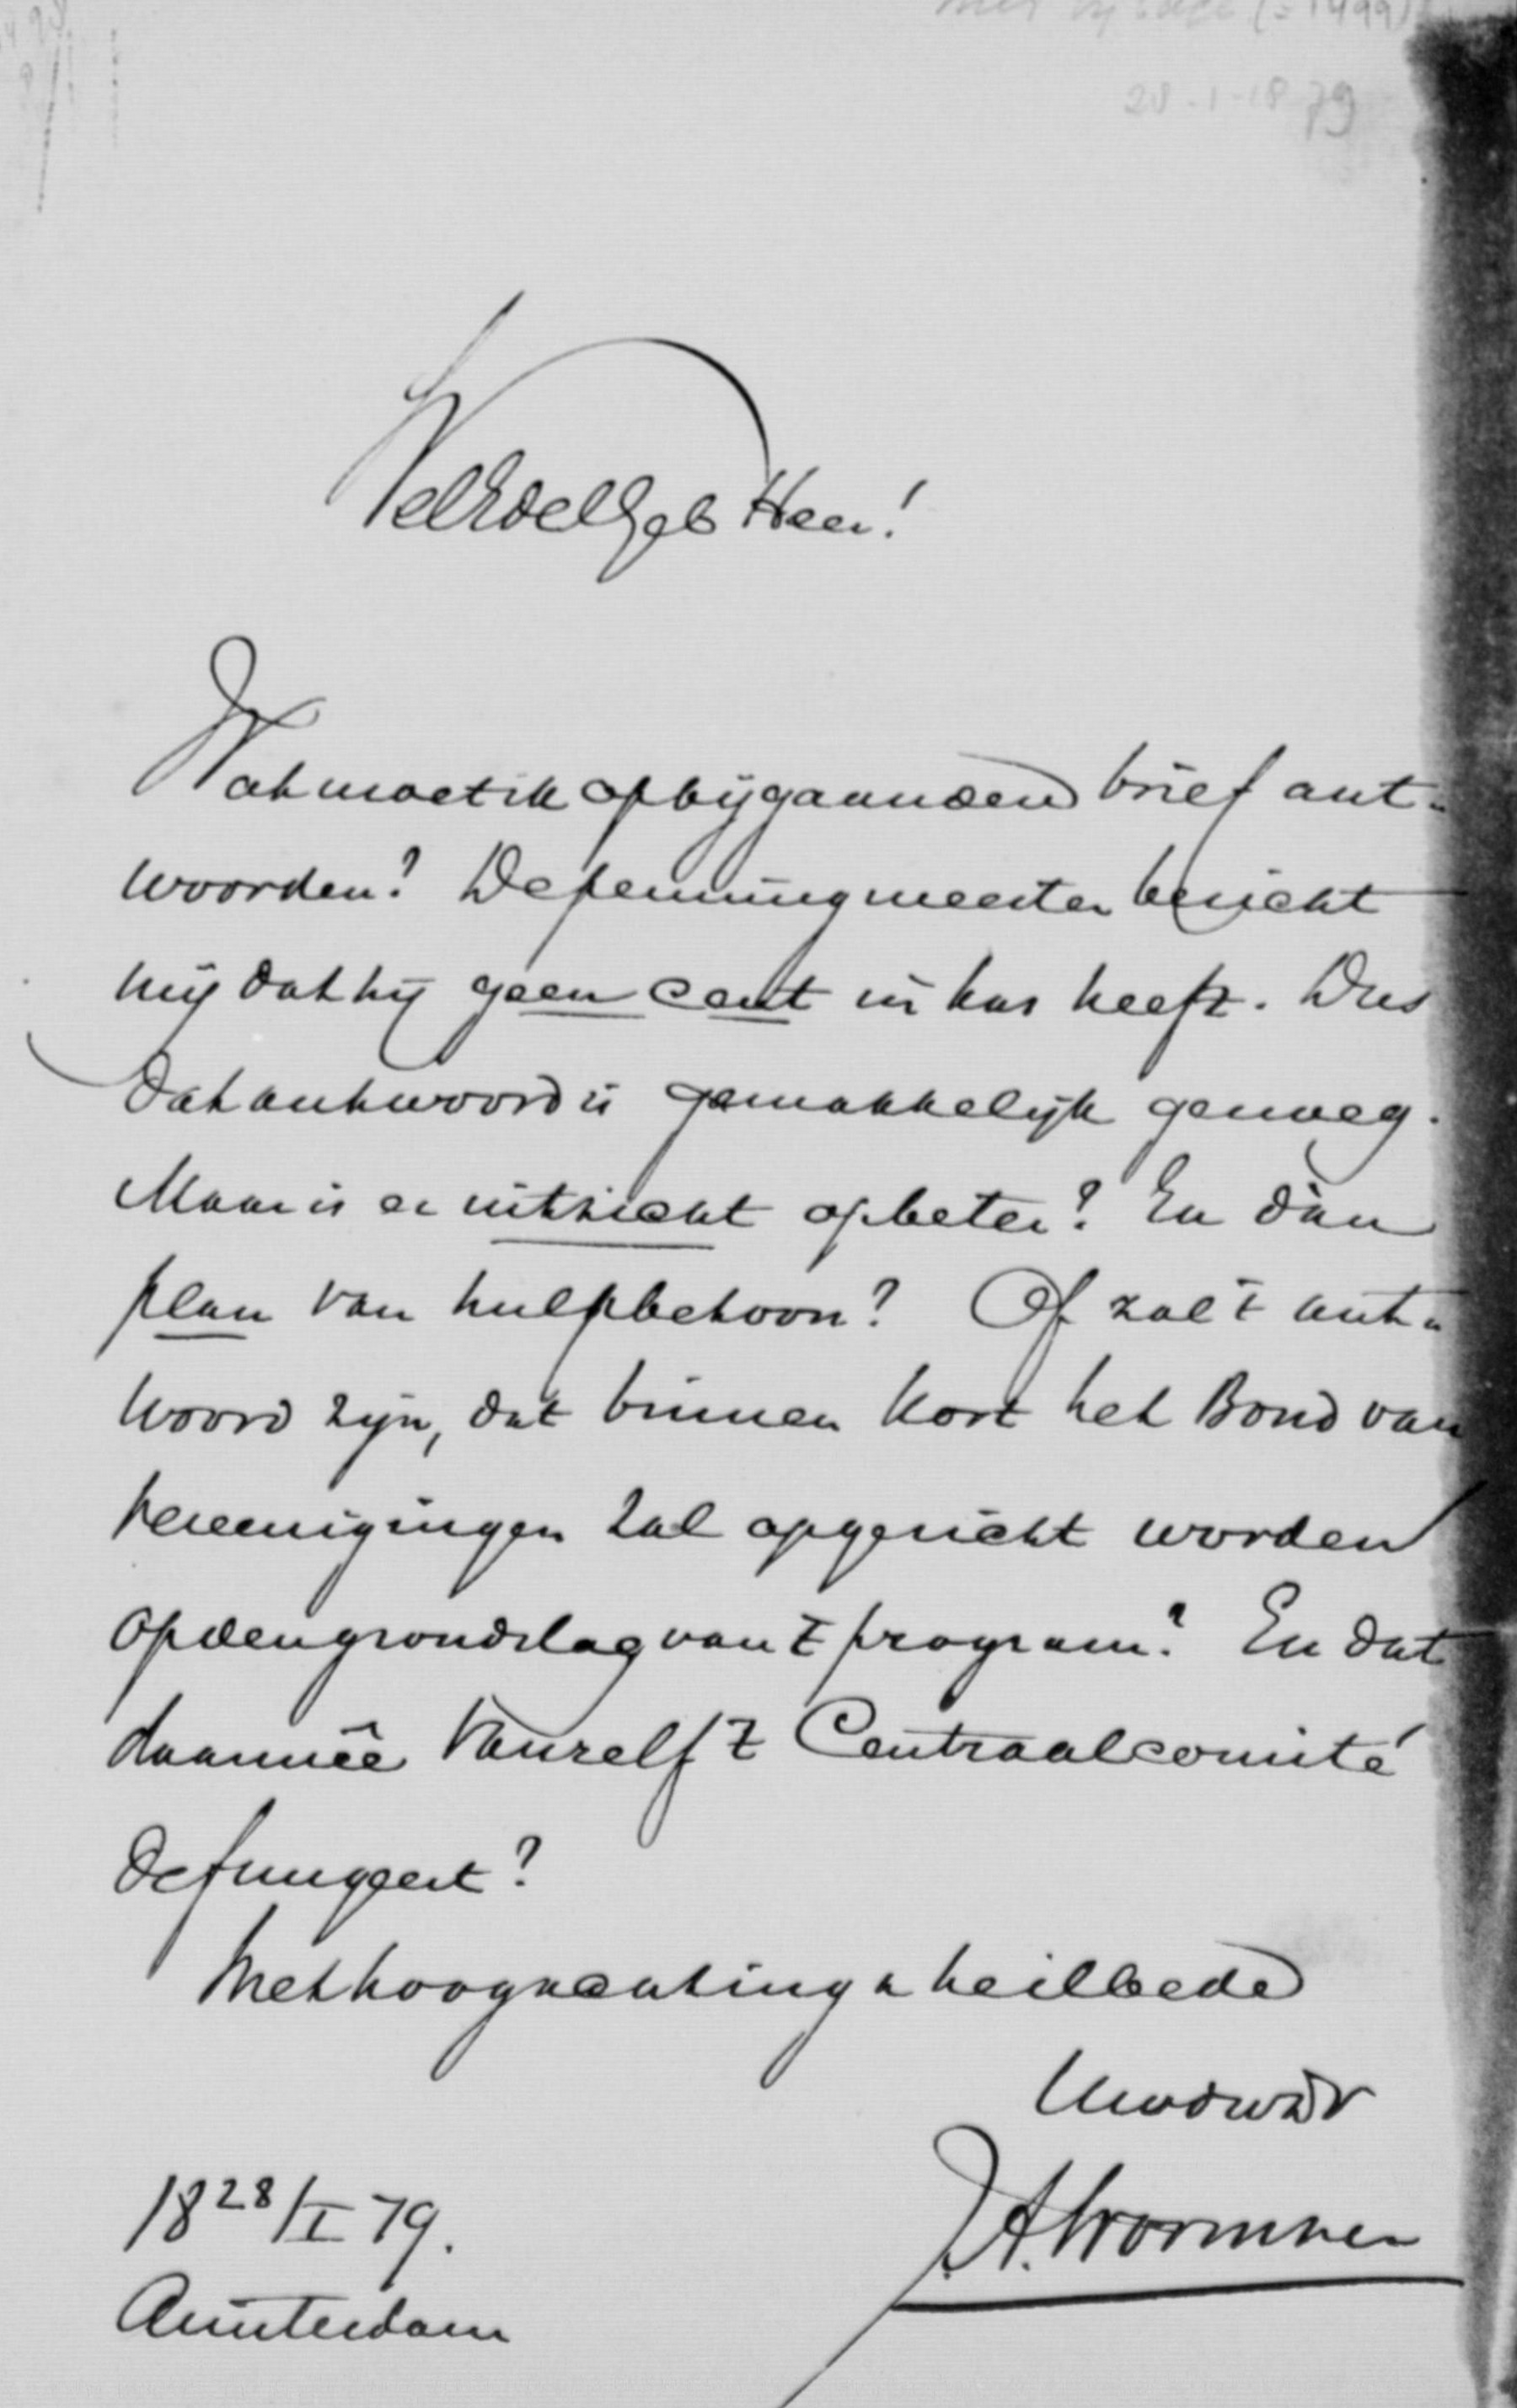 (=1499)
28-1-1879
WelEdelGeb Heer!
Wat moet ik op bijgaanden brief ant-
woorden? De penningmeester bericht
mij dat hij geen cent in kas heeft. Dus
dat antwoord is gemakkelijk genoeg.
Maar is er uitzicht op beter? En dàn
plan van hulpbetoon? Of zal 't ant-
woord zijn, dat binnen kort het Bond van
Vereenigingen zal opgericht worden
op den grondslag van 't program? En dat
daarmêe vanzelf 't Centraalcomité
defungeert?
Met hoogachting & heilbede
Uwdwdr
J.A. Wormser
18 28/I 79.
Amsterdam